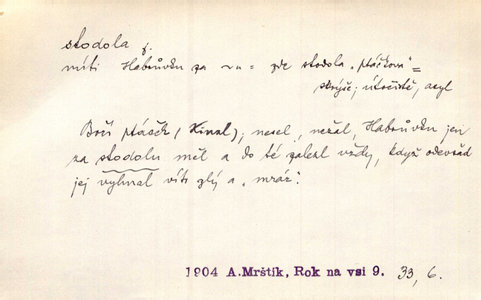 stodola f.
míti Habrůvku za ~u = zde stodola „ptáčkova" =
skrýše, útočiště, asyl
Boží ptáček (Kinal), nesel, nežal, Habrůvku jen
za stodolu měl a do té zalezl vždy, když odevšad
jej vyhnal vítr zlý a „mráz".
1904 A. Mrštík, Rok na vsi 9. 33, 6.